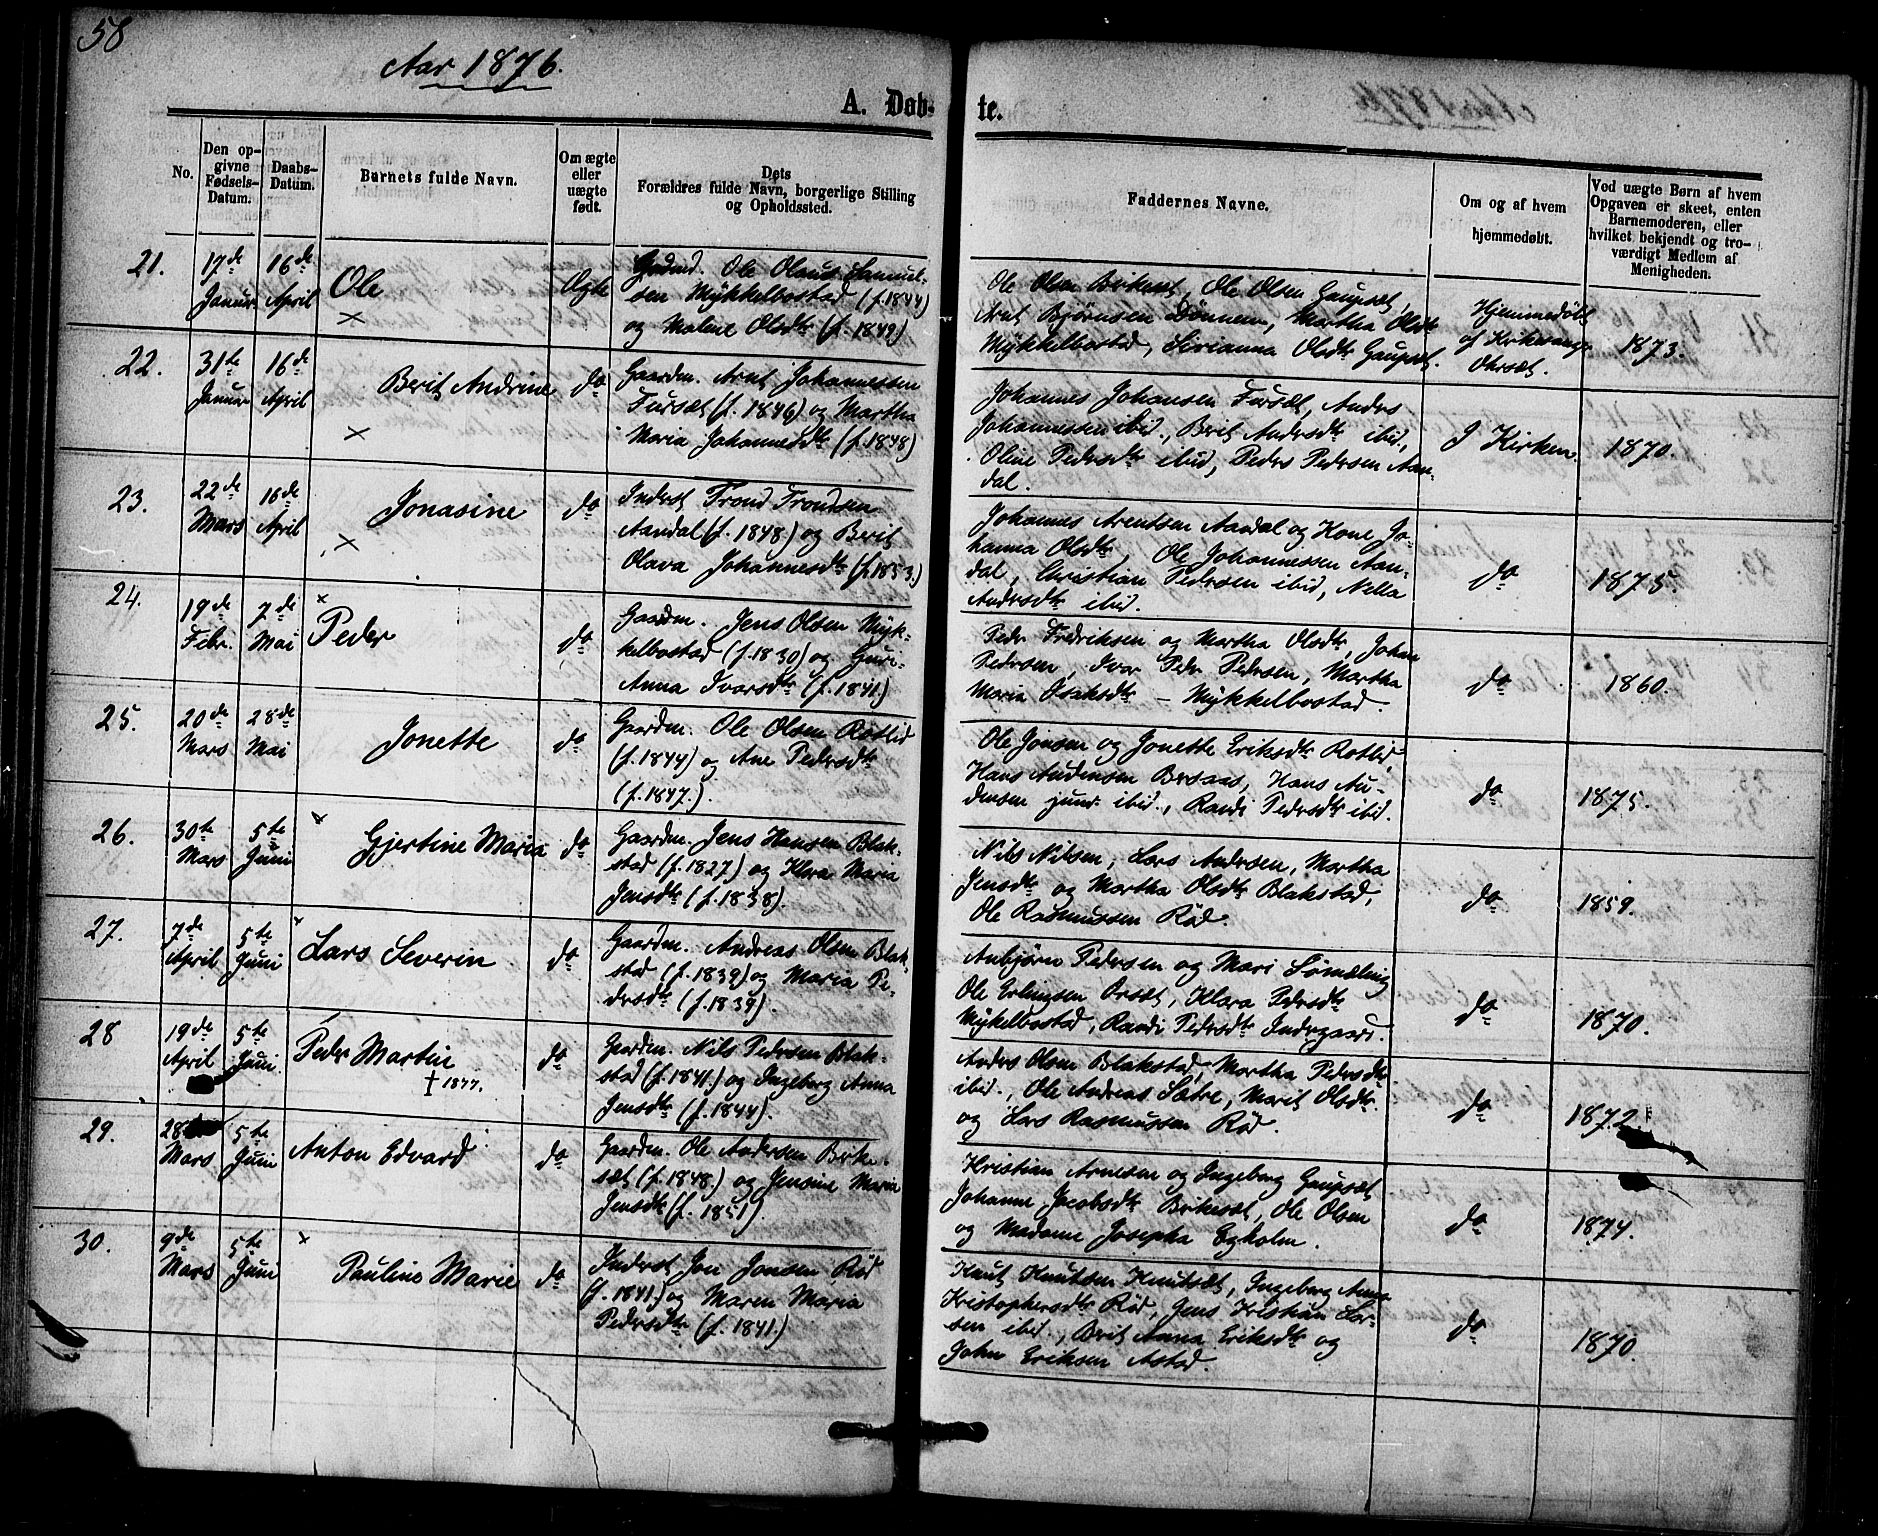 58
Aar 1876.
A. Døb-
te.
No.
Den op-
givne
Fødsels-
Datum.
Daabs-
Datum.
Barnets fulde Navn.
Om ægte
eller
uægte
født.
Dets
Forældres fulde Navn, borgerlige Stilling
og Opholdssted.
Faddernes Navne.
Om og af hvem
hjemmedøbt.
Ved uægte Børn af hvem
Opgaven er skeet, enten
Barnemoderen, eller
hvilket bekjendt og tro-
værdigt Medlem af
Menigheden.
21.
17de
Januar
16de
April
Ole
×
Ægte
Ole Olaus Samuel-
sen Mykkelbostad (f. 1844)
og Malene Olsdtr (f. 1849.)
Ole Olsen Birkesæt, Ole Olsen Gaupsæt,
Arnt Bjørnsen Dønnem, Martha Olsdtr
Mykkelbostad, Sirianna Olsdtr Gaupsæt.
Hjemmedøbt
af Kirkesanger
Orsæt.
1873.
22.
31te
Januar
16de
April
Berit Andrine
×
do
Gaardm. Arnt Johannessen
Fursæt (f. 1846) og Martha
Maria Johannesdtr (f. 1848)
Johannes Johansen Fursæt, Anders
Johannessen ibid., Brit Andersdtr ibid,
Oline Pedersdtr ibid, Peder Pedersen Aan-
dal.
I Kirken.
1870.
23.
22de
Mars
16de
April
Jonasine
×
do
Inderst Trond Trondsen
Aandal (f. 1848.) og Berit
Olava Johannesdtr (f. 1853.)
Johannes Arentsen Aandal og Kone Jo-
hanna Olsdtr, Ole Johannessen Aan-
dal, Christian Pedersen ibid, Nella
Andersdtr ibid.
do
1875.
24.
19de
Febr.
7de
Mai
×
Peder
do
Gaardm. Jens Olsen Myk-
kelbostad (f. 1830) og Guri-
Anna Ivarsdtr (f. 1841.)
Peder Fredriksen og Martha Olsdtr, Johan
Pedersen, Ivar Pedr Pedersen, Martha
Maria Isaksdtr – Mykkelbostad.
do
1860.
25.
20de
Mars
28de
Mai
Jonette
do
Gaardm. Ole Olsen Rotlid
(f. 1844) og Ane Pedersdtr
(f. 1847.).
Ole Jonsen og Jonette Eriksdtr Rotlid,
Hans Audensen Bersaas, Hans Au-
densen jun. ibid., Randi Pedersdtr ibid.
do
1875.
26.
30te
Mars
5te
Juni
×
Gjertine Maria
do
Gaardm. Jens Hansen Blak-
stad (f. 1827) og Klara Maria
Jensdtr (f. 1838).
Nils Nilsen, Lars Andersen, Martha
Jensdtr og Martha Olsdtr Blakstad,
Ole Rasmussen Rød.
do
1859.
27.
7de
April
5te
Juni
×
Lars Severin
do
Gaardm. Andreas Olsen Blak-
stad (f. 1839) og Maria Pe-
dersdtr (f. 1839).
Anbjørn Pedersen og Mari Sømælring
Ole Erlingsen Orsæt, Klara Pedersdtr
Mykelbostad, Randi Pedersdtr Indergaard.
do
1870.
28
19de
April
5te
Juni
Peder Martin
† 1877.
do
Gaardm. Nils Pedersen Blak-
stad (f. 1841.) og Ingeborg Anna
Jensdtr (f. 1844).
Anders Olsen Blakstad, Martha Pedersdtr
ibid., Ole Andreas Sætre, Marit Olsdtr
og Lars Rasmussen Rød.
do
1872
29.
28
Mars
5te
Juni
Anton Edvard
do
Gaardm. Ole Andersen Birke-
sæt (f. 1848) og Jensine Maria
Jensdtr (f. 1851).
Kristian Arnesen og Ingeborg Gaupsæt
Johanne Jacobsdtr Birkesæt, Ole Olsen
og Madame Josepha Egholm.
do
1874.
30.
9de
Mars
5te
Juni
×
Pauline Marie
do
Inderst Jon Jonsen Rød
(f. 1841.) og Maren Maria
Pedersdtr (f. 1841.)
Knut Knutsen Knutsæt, Ingeborg Anna
Kristophersdtr Rød, Jens Kristian Lar-
sen ibid., Brit Anna Eriksdtr og
John Eriksen Astad.
do
1870.